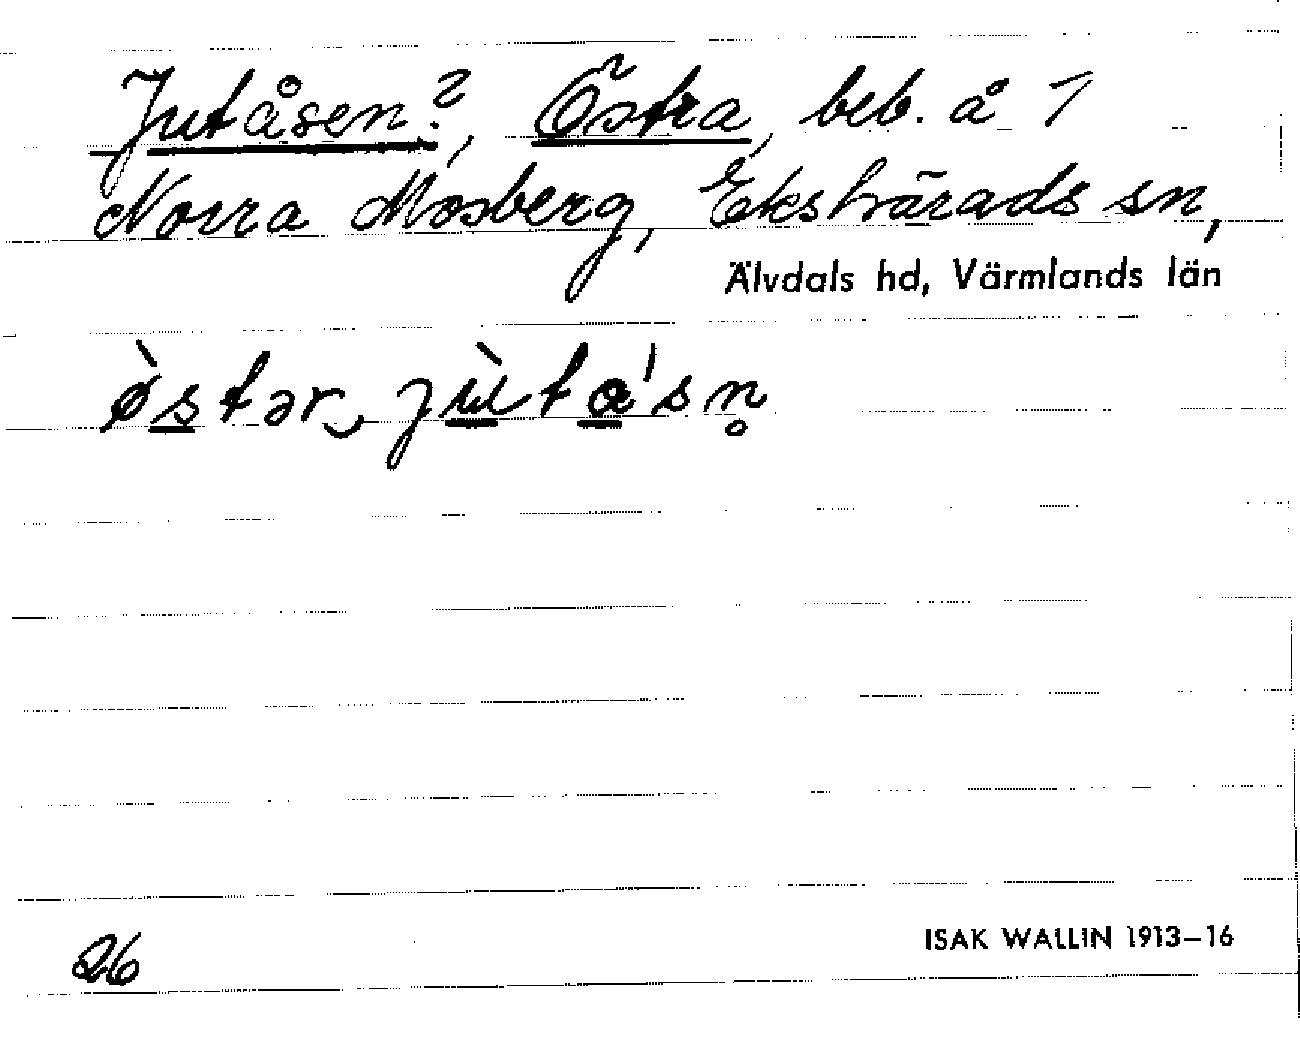 Jutåsen?, Östra, beb. å 1
Norra Mosberg, Ekshärads sn,
Älvdals hd, Värmlands län
ø̀stər‿jùta'sn̥
26
ISAK WALLIN 1913–16